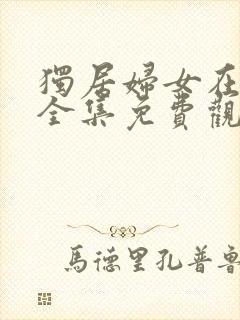 獨居婦女在
全集免費觀
馬德里孔普魯